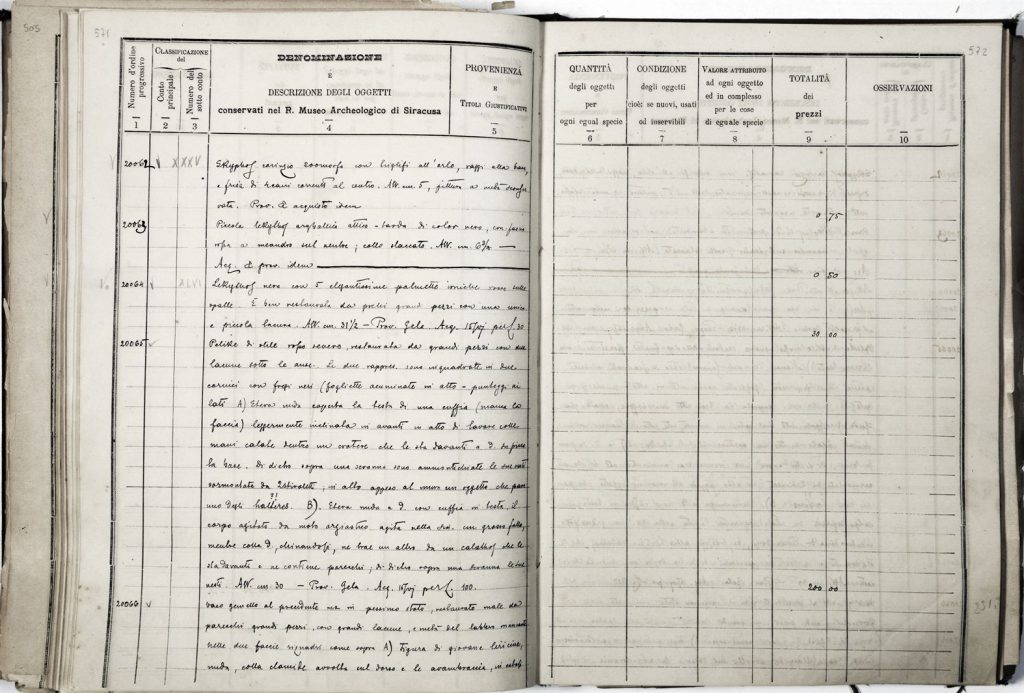 505
571
Numero d'ordine progressivo
CLASSIFICAZIONE del
Conto principale
Numero del sotto conto
DENOMINAZIONE
E
DESCRIZIONE DEGLI OGGETTI
conservati nel R. Museo Archeologico di Siracusa
PROVENIENZA
E
TITOLI GIUSTIFICATIVI
1 2 3 4 5
20062 V XXXV Skyphos corinzio zoomorfo con all'orlo, raggi alla base
e di cani correnti al centro. Alt. cm. 5, pittura a metà
vata. Prov. & acquisto idem
20063 Piccola lekythos attico di color nero, con fascia
rossa a meandro sul ventre; collo staccato. Alt. cm.
Acq. & prov. idem
20064 V XLVI Lekythos nera con 5 elegantissime palmette ioniche rosse sulle
spalle. È ben restaurata da pochi grandi pezzi con una unica
e piccola lacuna. Alt. cm. 31 1/2 – Prov. Gela. Acq. per £. 30
20065 V Pelike di stile rosso severo, restaurata da grandi pezzi con due
lacune sotto le anse. Le due rappres. sono inquadrate in due
cornici con fregi neri (fogliette acuminate in alto – punteggi ai
lati A) Etera nuda coperta la testa di una cuffia (manca la
faccia) leggermente inclinata in avanti in atto di lavare colle
mani calate dentro un cratere che le sta davanti a d.
la base. Di dietro sopra una scranna sono ammonticchiate le sue vesti
sormontate da 2 stivaletti, in alto appeso al muro un oggetto che pare
uno degli halteres. ?! B). Etera nuda a d. con cuffia in testa. Il
corpo agitato da moto orgiastico agita nella sin. un grosso fallo,
mentre colla d., chinandosi, ne trae un altro da un calathos che le
sta davanti e ne contiene parecchi; di dietro sopra una scranna le sue
vesti. Alt. cm. 30 – Prov. Gela. Acq. per £. 100.
20066 V vaso gemello al precedente ma in pessimo stato, restaurato male da
parecchi grandi pezzi, con grandi lacune, e metà del labbro mancante
nelle due faccie riquadri come sopra A) Figura di giovane
nudo, colla clamide avvolta sul dorso e le avambraccia, in
572
QUANTITÀ
degli oggetti
per
ogni egual specie
CONDIZIONE
degli oggetti
cioè: se nuovi, usati
od inservibili
VALORE ATTRIBUITO
ad ogni oggetto
ed in complesso
per le cose
di eguale specie
TOTALITÀ
dei
prezzi
OSSERVAZIONI
6 7 8 9 10
0 75
0 50
30 00
200 00